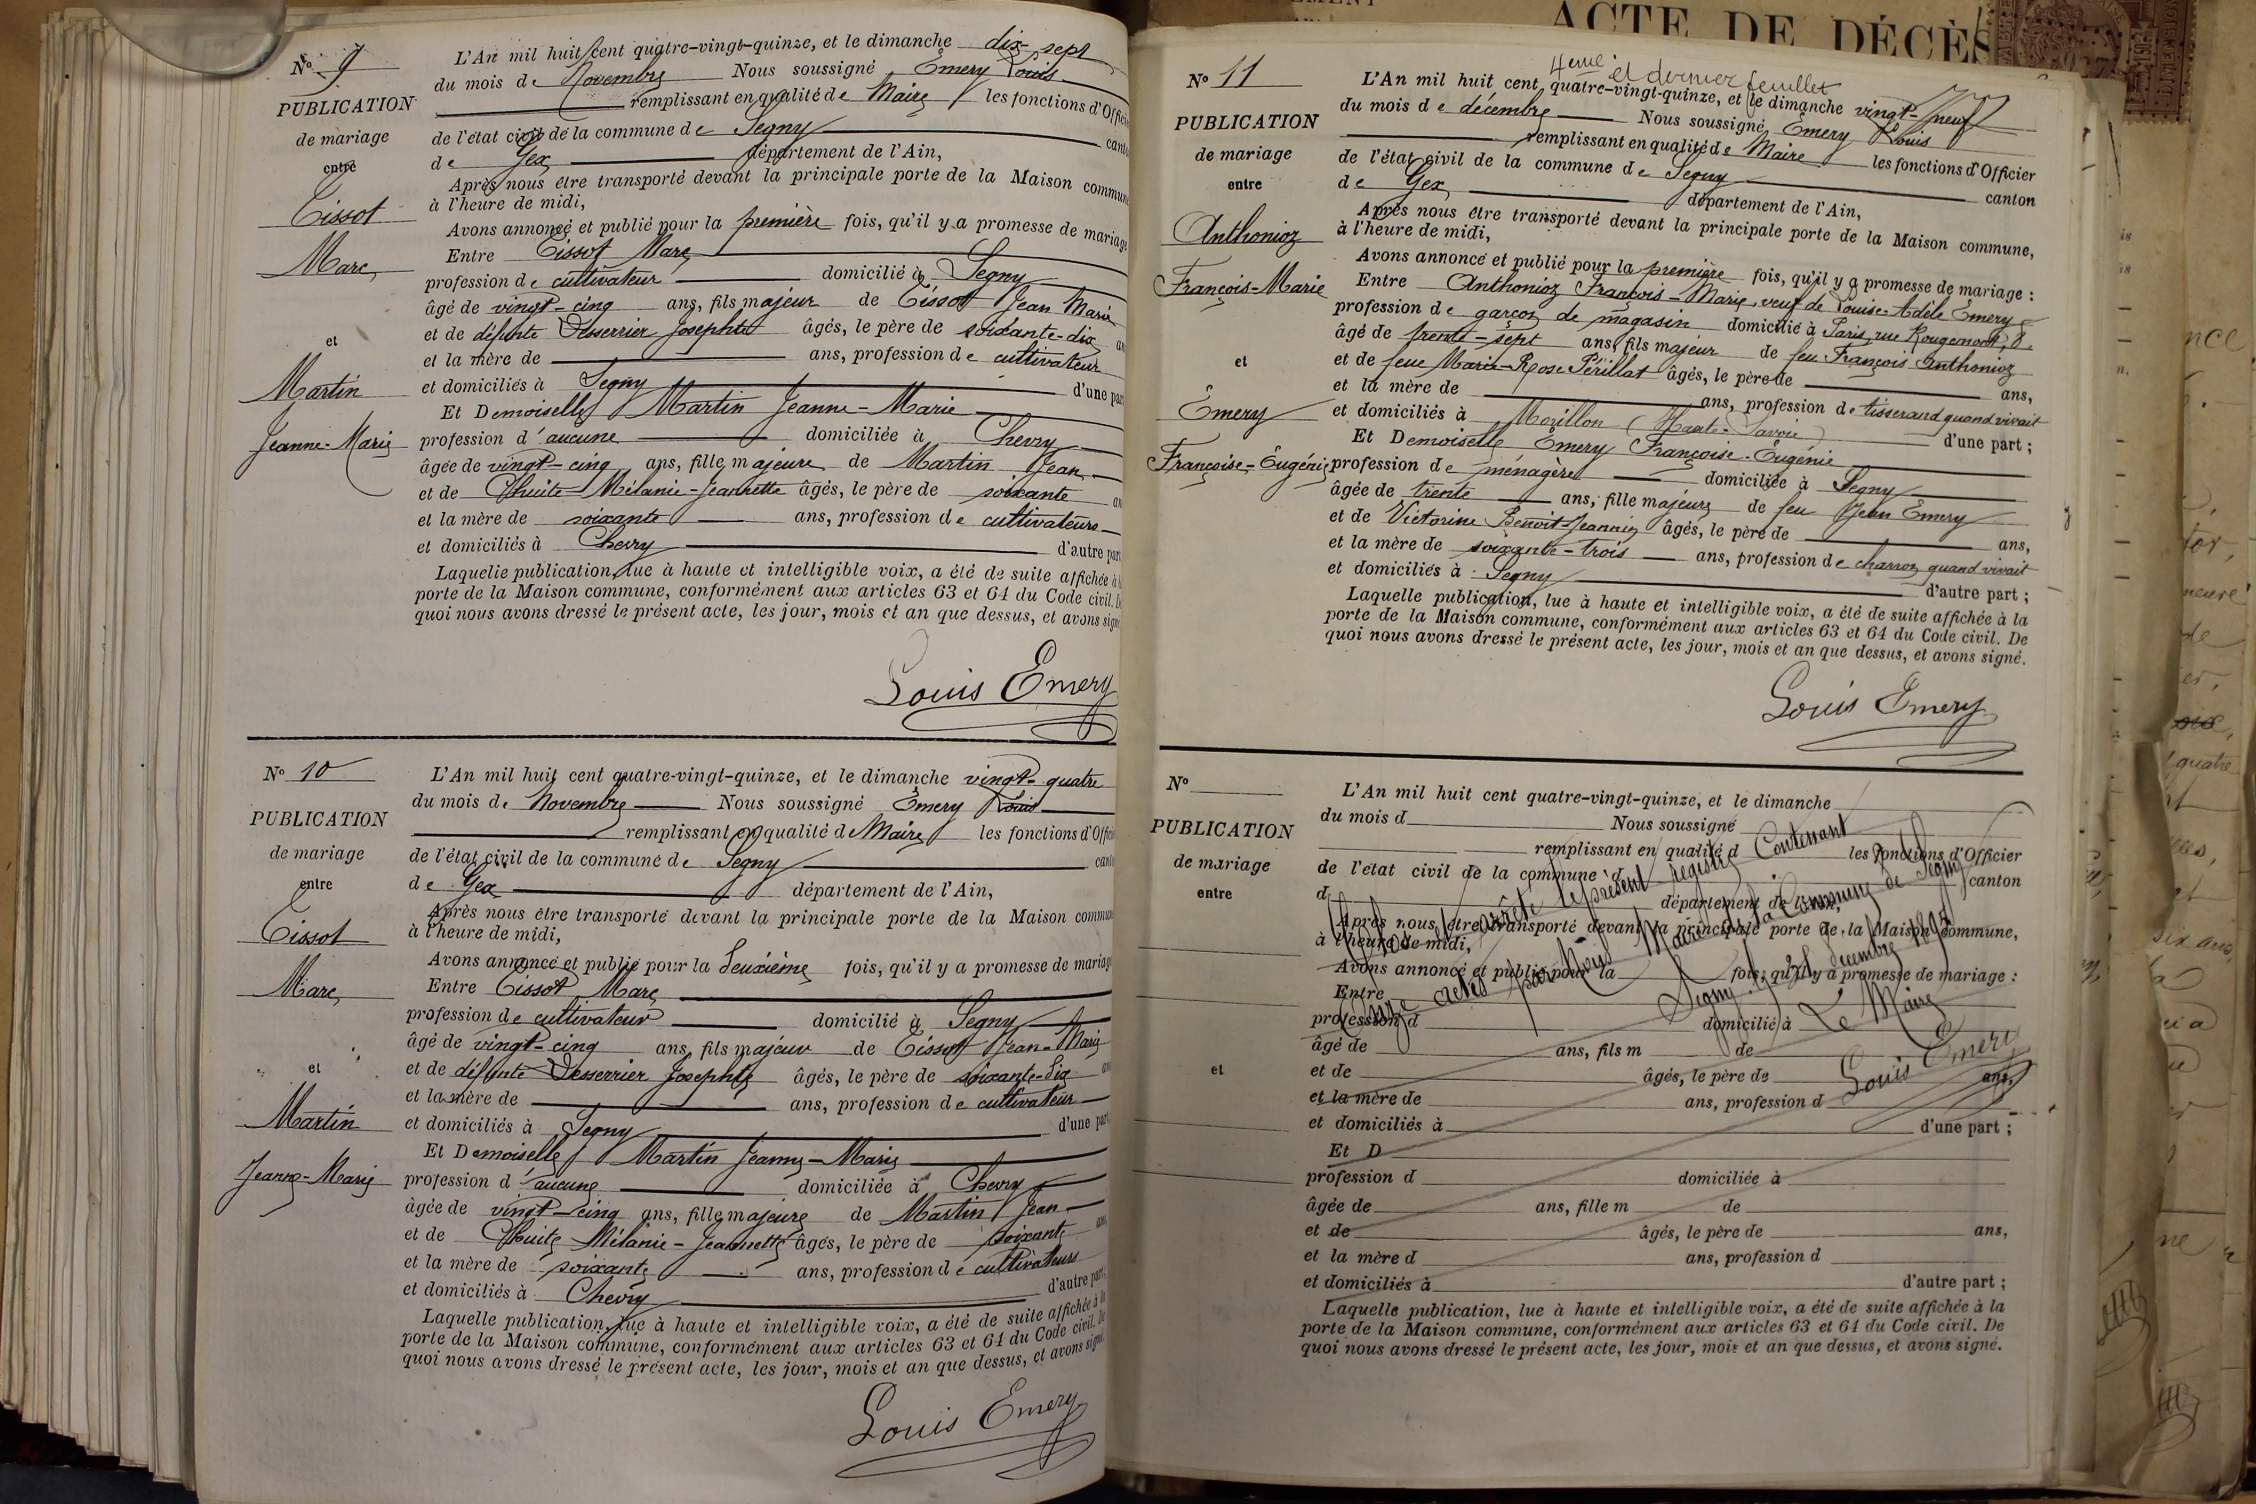 N° 9
PUBLICATION
de mariage
entre
Tissot
Marc
et
Martin
Jeanne-Marie
L'An mil huit cent quatre-vingt-quinze, et le dimanche dix-sept
du mois de Novembre Nous soussigné Émery Louis
remplissant en qualité de Maire les fonctions d'Offici
de l'état civil de la commune de Segny canto
de Gex département de l'Ain,
Après nous être transporté devant la principale porte de la Maison commun
à l'heure de midi,
Avons annoncé et publié pour la première fois, qu'il y a promesse de mariag
Entre Tissot Marc
profession de cultivateur domicilié à Segny
âgé de vingt-cinq ans, fils majeur de Tissot Jean Marie
et de défunte Desserrier Josephte âgés, le père de soixante-dix an
et la mère de ans, profession de cultivateur
et domiciliés à Segny d'une part
Et Demoiselle Martin Jeanne-Marie
profession d'aucune domiciliée à Chevry
âgée de vingt-cinq ans, fille majeure de Martin Jean
et de Mélanie-Jeannette âgés, le père de soixante an
et la mère de soixante ans, profession de cultivateurs
et domiciliés à Chevry d'autre part
Laquelle publication, lue à haute et intelligible voix, a été de suite affichée à la
porte de la Maison commune, conformément aux articles 63 et 64 du Code civil. De
quoi nous avons dressé le présent acte, les jour, mois et an que dessus, et avons signé
Louis Emery
N° 10
PUBLICATION
de mariage
entre
Tissot
Marc
et
Martin
Jeanne-Marie
L'An mil huit cent quatre-vingt-quinze, et le dimanche vingt-quatre
du mois de Novembre Nous soussigné Émery Louis
remplissant en qualité de Maire les fonctions d'Offici
de l'état civil de la commune de Segny canto
de Gex département de l'Ain,
Après nous être transporté devant la principale porte de la Maison commun
à l'heure de midi,
Avons annoncé et publié pour la deuxième fois, qu'il y a promesse de mariag
Entre Tissot Marc
profession de cultivateur domicilié à Segny
âgé de vingt-cinq ans, fils majeur de Tissot Jean-Marie
et de défunte Desserrier Josephte âgés, le père de soixante-dix an
et la mère de ans, profession de cultivateur
et domiciliés à Segny d'une part
Et Demoiselle Martin Jeanne-Marie
profession d'aucune domiciliée à Chevry
âgée de vingt-cinq ans, fille majeure de Martin Jean
et de Mélanie-Jeannette âgés, le père de soixante an
et la mère de soixante ans, profession de cultivateurs
et domiciliés à Chevry d'autre part
Laquelle publication, lue à haute et intelligible voix, a été de suite affichée à la
porte de la Maison commune, conformément aux articles 63 et 64 du Code civil. De
quoi nous avons dressé le présent acte, les jour, mois et an que dessus, et avons signé
Louis Emery
ACTE DE DÉCÈS
4eme et dernier feuillet
N° 11
PUBLICATION
de mariage
entre
Anthonioz
François-Marie
et
Émery
Françoise-Eugénie
L'An mil huit cent quatre-vingt-quinze, et le dimanche vingt-neuf
du mois de décembre Nous soussigné Émery Louis
remplissant en qualité de Maire les fonctions d'Officier
de l'état civil de la commune de Segny canton
de Gex département de l'Ain,
Après nous être transporté devant la principale porte de la Maison commune,
à l'heure de midi,
Avons annoncé et publié pour la première fois, qu'il y a promesse de mariage :
Entre Anthonioz François-Marie, veuf de Louise-Adèle Émery
profession de garçon de magasin domicilié à Paris, rue Rougemont, 8.
âgé de trente-sept ans, fils majeur de feu François Anthonioz
et de feue Marie-Rose Périllat âgés, le père de ans,
et la mère de ans, profession de tisserand quand vivait
et domiciliés à Morillon (Haute-Savoie) d'une part ;
Et Demoiselle Émery Françoise-Eugénie
profession de ménagère domiciliée à Segny
âgée de trente ans, fille majeure de feu Jean Émery
et de Victorine Benoit-Jeannin âgés, le père de ans,
et la mère de soixante-trois ans, profession de charron quand vivait
et domiciliés à Segny d'autre part ;
Laquelle publication, lue à haute et intelligible voix, a été de suite affichée à la
porte de la Maison commune, conformément aux articles 63 et 64 du Code civil. De
quoi nous avons dressé le présent acte, les jour, mois et an que dessus, et avons signé.
Louis Emery
N°
PUBLICATION
de mariage
entre
et
L'An mil huit cent quatre-vingt-quinze, et le dimanche
du mois d Nous soussigné
remplissant en qualité d les fonctions d'Officier
de l'état civil de la commune d canton
d département de l'Ain,
Après nous être transporté devant la principale porte de la Maison commune,
à l'heure de midi,
Avons annoncé et publié pour la fois, qu'il y a promesse de mariage :
Entre
profession d domicilié à
âgé de ans, fils m de
et de âgés, le père de ans,
et la mère de ans, profession d
et domiciliés à d'une part ;
Et D
profession d domiciliée à
âgée de ans, fille m de
et de âgés, le père de ans,
et la mère d ans, profession d
et domiciliés à d'autre part ;
Laquelle publication, lue à haute et intelligible voix, a été de suite affichée à la
porte de la Maison commune, conformément aux articles 63 et 64 du Code civil. De
quoi nous avons dressé le présent acte, les jour, mois et an que dessus, et avons signé.
Clos et arrêté le présent registre Contenant
Onze actes par Nous Maire de la Commune de Segny
Segny le 31 décembre 1895
Le Maire
Louis Emery